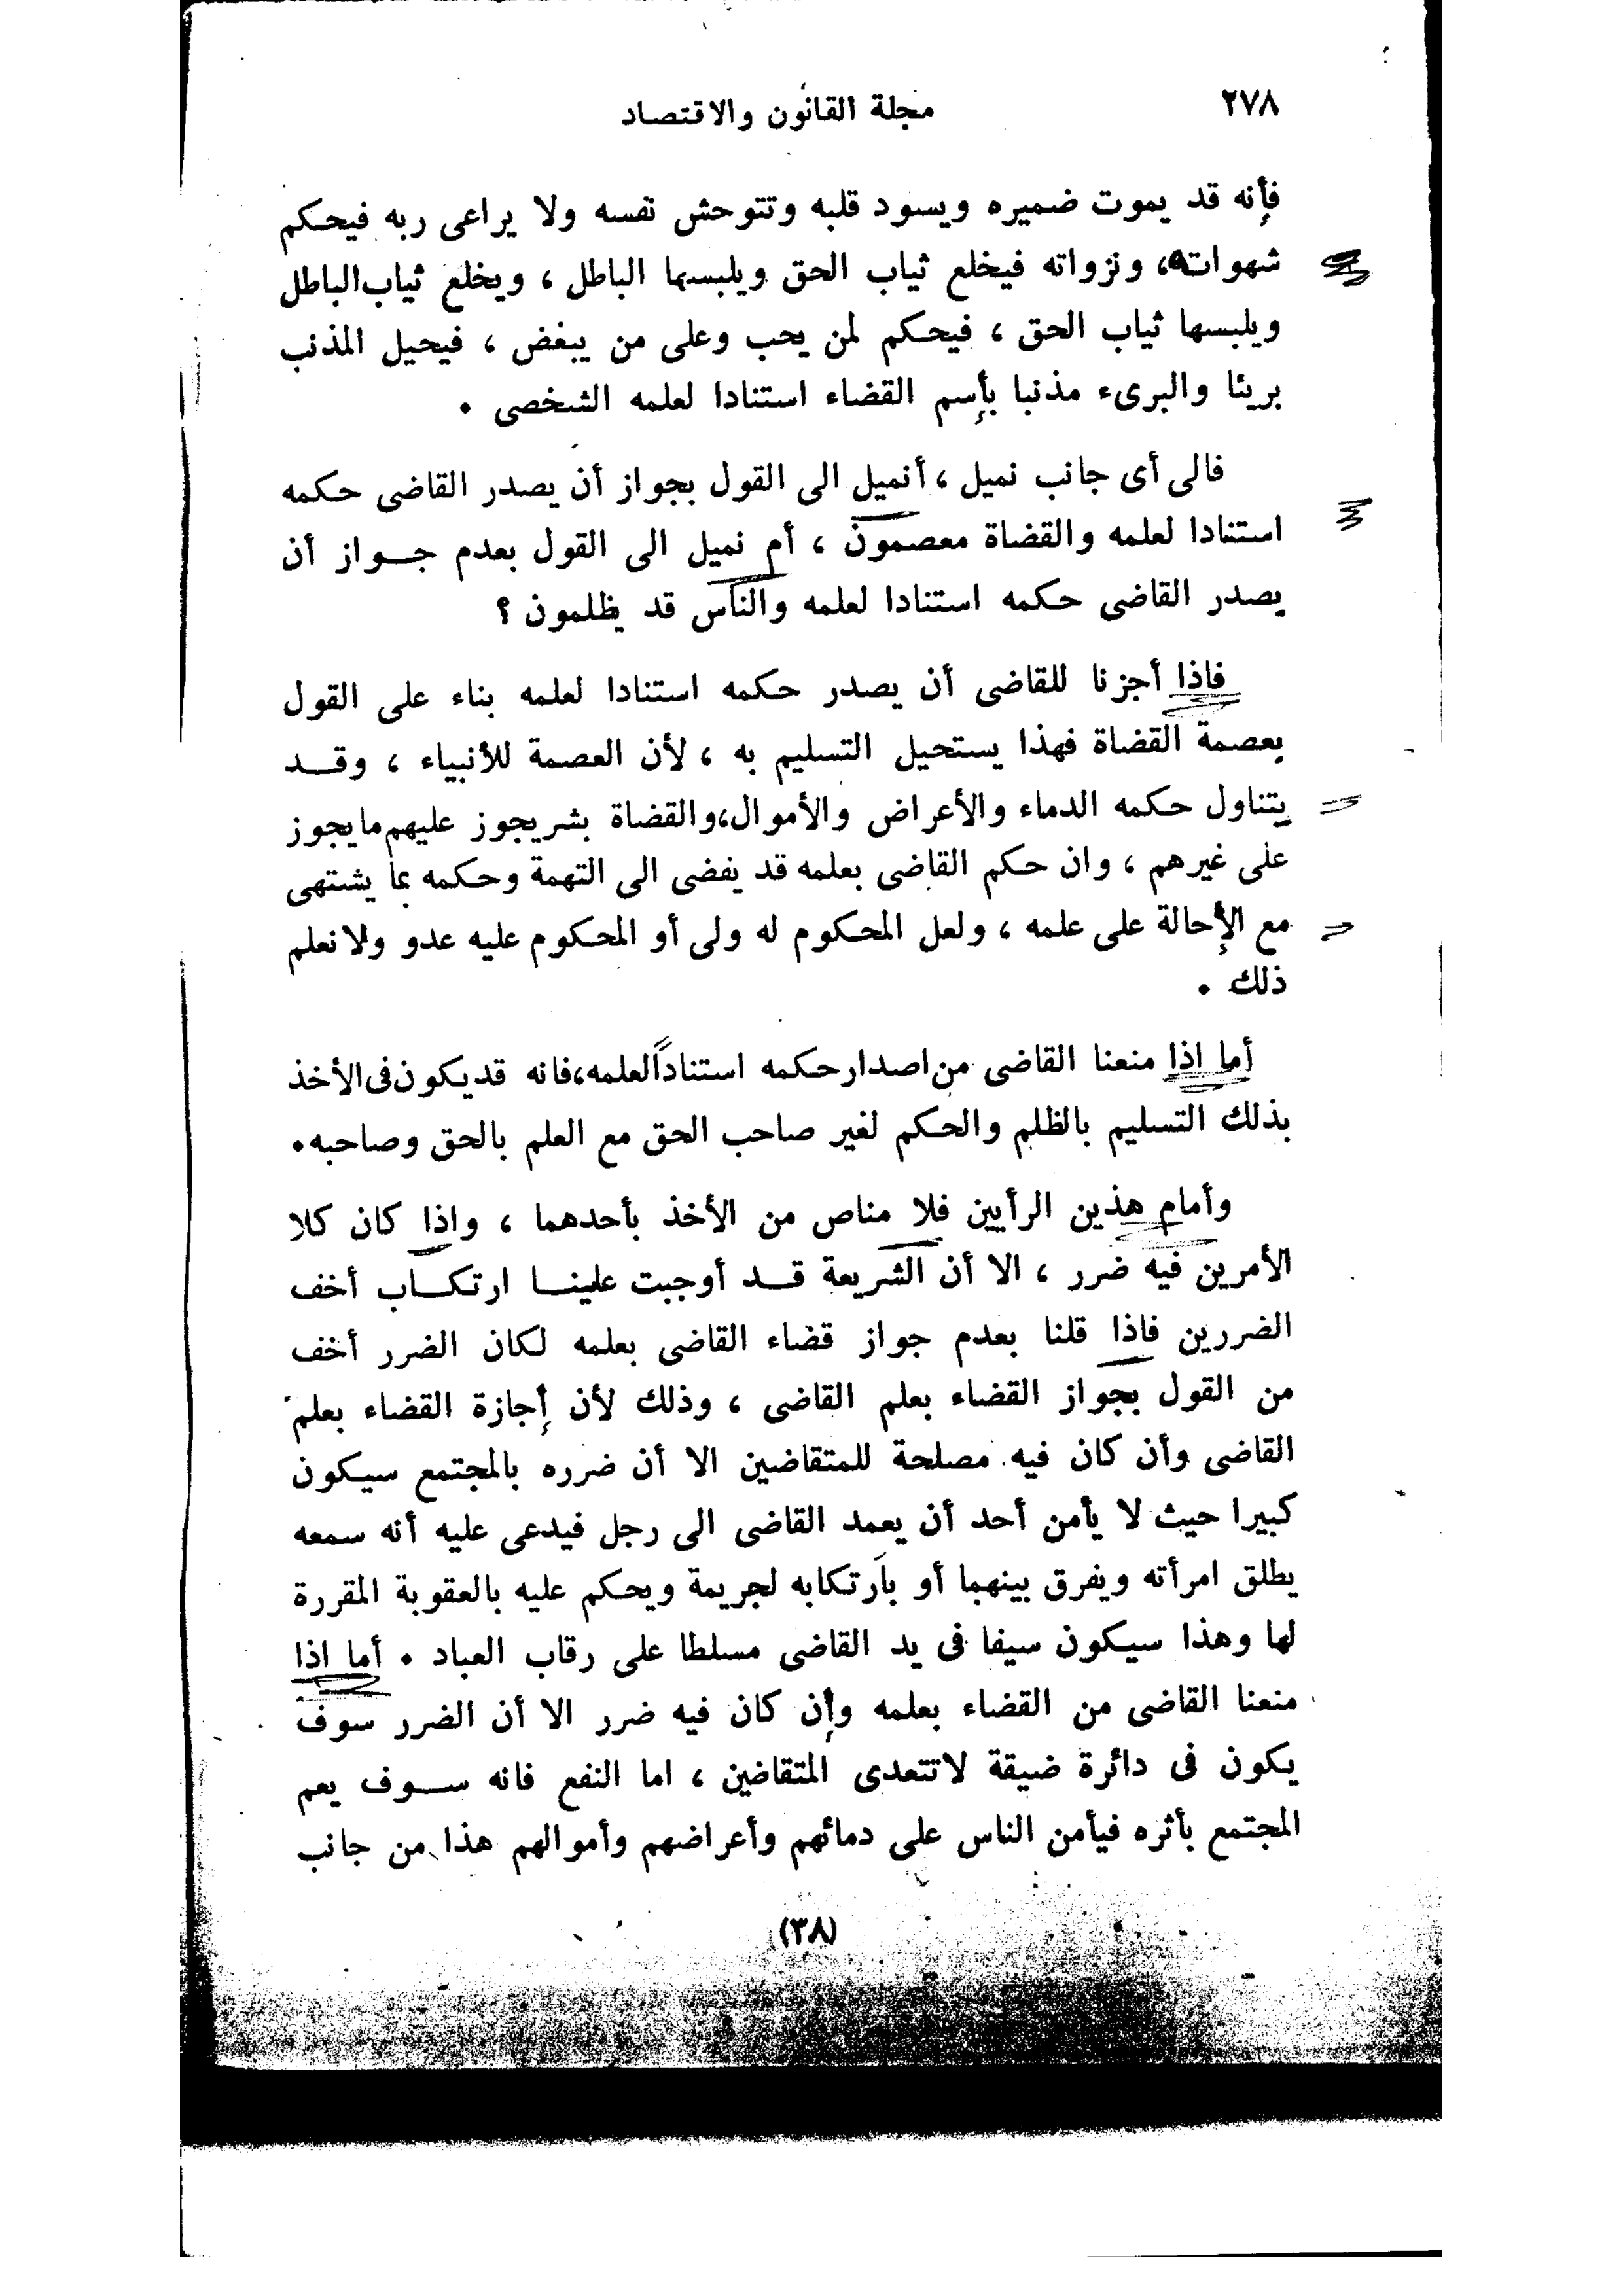 ٢٧٨
مجلة القانون والاقتصاد
فإنه قد يموت ضميره ويسود قلبه وتتوحش نفسه ولا يراعى ربه فيحكم
شهواته، ونزواته فيخلع ثياب الحق ويلبسها الباطل ، ويخلع ثياب الباطل
ويلبسها ثياب الحق ، فيحكم لمن يحب وعلى من يبغض ، فيحيل المذنب
بريئا والبرىء مذنبا بإسم القضاء استنادا لعلمه الشخصى .
فالى أى جانب نميل ، أنميل الى القول بجواز أن يصدر القاضى حكمه
استنادا لعلمه والقضاة معصمون ، أم نميل الى القول بعدم جــواز أن
يصدر القاضى حكمه استنادا لعلمه والناس قد يظلمون ؟
فاذا أجزنا للقاضى أن يصدر حكمه استنادا لعلمه بناء على القول
بعصمة القضاة فهذا يستحيل التسليم به ، لأن العصمة للأنبياء ، وقــد
يتناول حكمه الدماء والأعراض والأموال،والقضاة بشر يجوز عليهم ما يجوز
على غيرهم ، وان حكم القاضى بعلمه قد يفضى الى التهمة وحكمه بما يشتهى
مع الإحالة على علمه ، ولعل المحكوم له ولى أو المحكوم عليه عدو ولا نعلم
ذلك .
أما اذا منعنا القاضى من اصدار حكمه استناداً لعلمه،فانه قد يكون فى الأخذ
بذلك التسليم بالظلم والحكم لغير صاحب الحق مع العلم بالحق وصاحبه.
وأمام هذين الرأيين فلا مناص من الأخذ بأحدهما ، واذا كان كلا
الأمرين فيه ضرر ، الا أن الشريعة قــد أوجبت علينــا ارتكــاب أخف
الضررين فاذا قلنا بعدم جواز قضاء القاضى بعلمه لكان الضرر أخف
من القول بجواز القضاء بعلم القاضى ، وذلك لأن إجازة القضاء بعلم
القاضى وأن كان فيه مصلحة للمتقاضين الا أن ضرره بالمجتمع سيكون
كبيرا حيث لا يأمن أحد أن يعمد القاضى الى رجل فيدعى عليه أنه سمعه
يطلق امرأته ويفرق بينهما أو بارتكابه لجريمة ويحكم عليه بالعقوبة المقررة
لها وهذا سيكون سيفا فى يد القاضى مسلطا على رقاب العباد . أما اذا
منعنا القاضى من القضاء بعلمه وإن كان فيه ضرر الا أن الضرر سوف
يكون فى دائرة ضيقة لا تتعدى المتقاضين ، اما النفع فانه ســوف يعم
المجتمع بأثره فيأمن الناس على دمائهم وأعراضهم وأموالهم هذا من جانب
(٣٨)